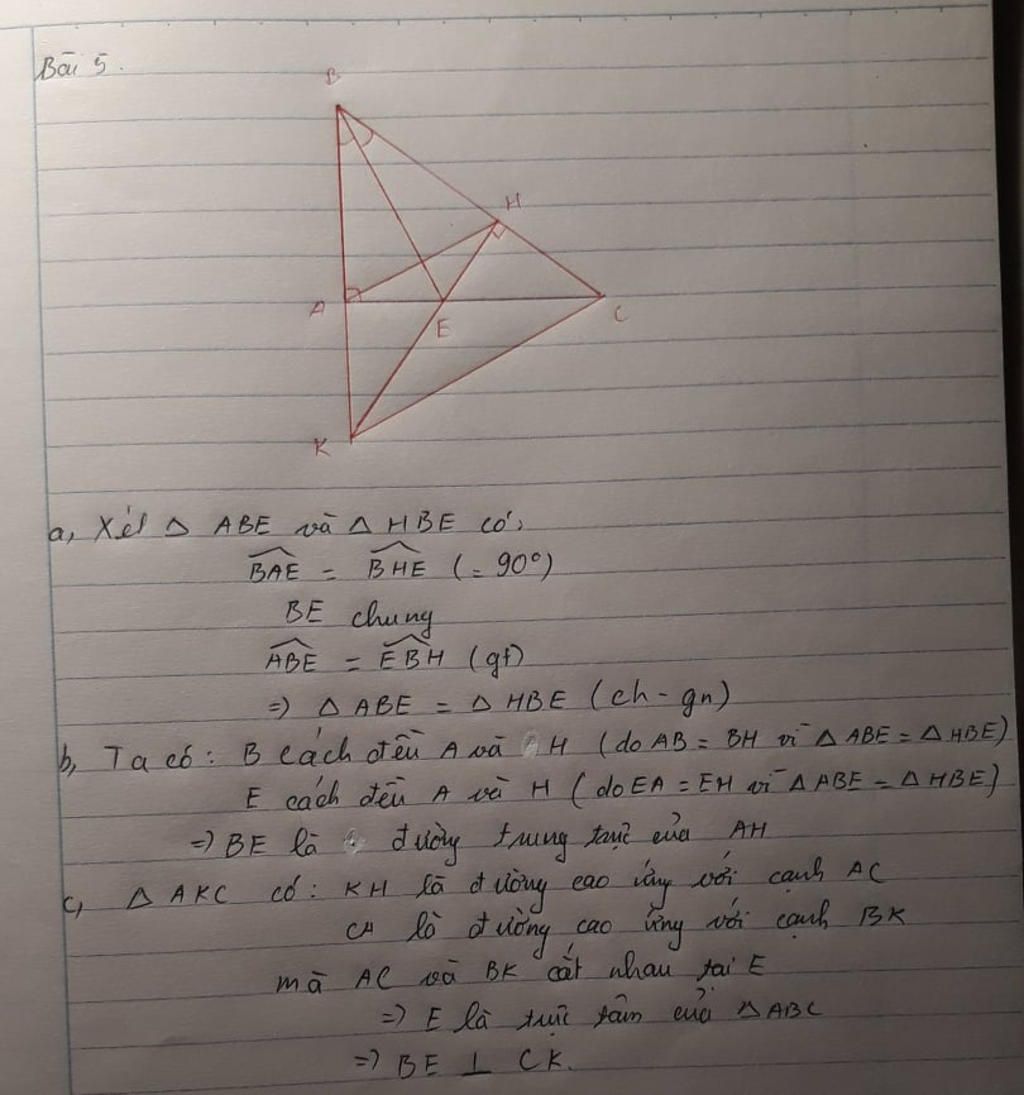 Bài 5.
B
H
A
E
C
K
a, Xét △ ABE và △ HBE có,
BAE = BHE (= 90°)
BE chung
ABE = EBH (gt)
=> △ ABE = △ HBE (ch - gn)
b, Ta có : B cách đều A và H (do AB = BH vì △ ABE = △ HBE)
E cách đều A và H (do EA = EH vì △ ABE = △ HBE)
=> BE là đường trung trực của AH
c, △ AKC có : KH là đường cao ứng với cạnh AC
CA là đường cao ứng với cạnh BK
mà AC và BK cắt nhau tại E
=> E là trực tâm của △ABC
=> BE ⊥ CK.